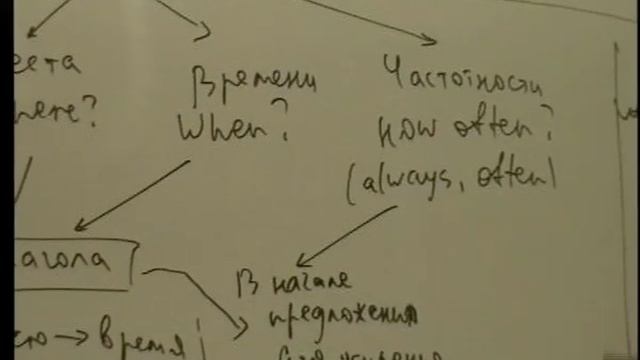 еста
Where?
Времени
When?
Частотности
How often?
(always, often)
агола
В начале
предложения
то → время